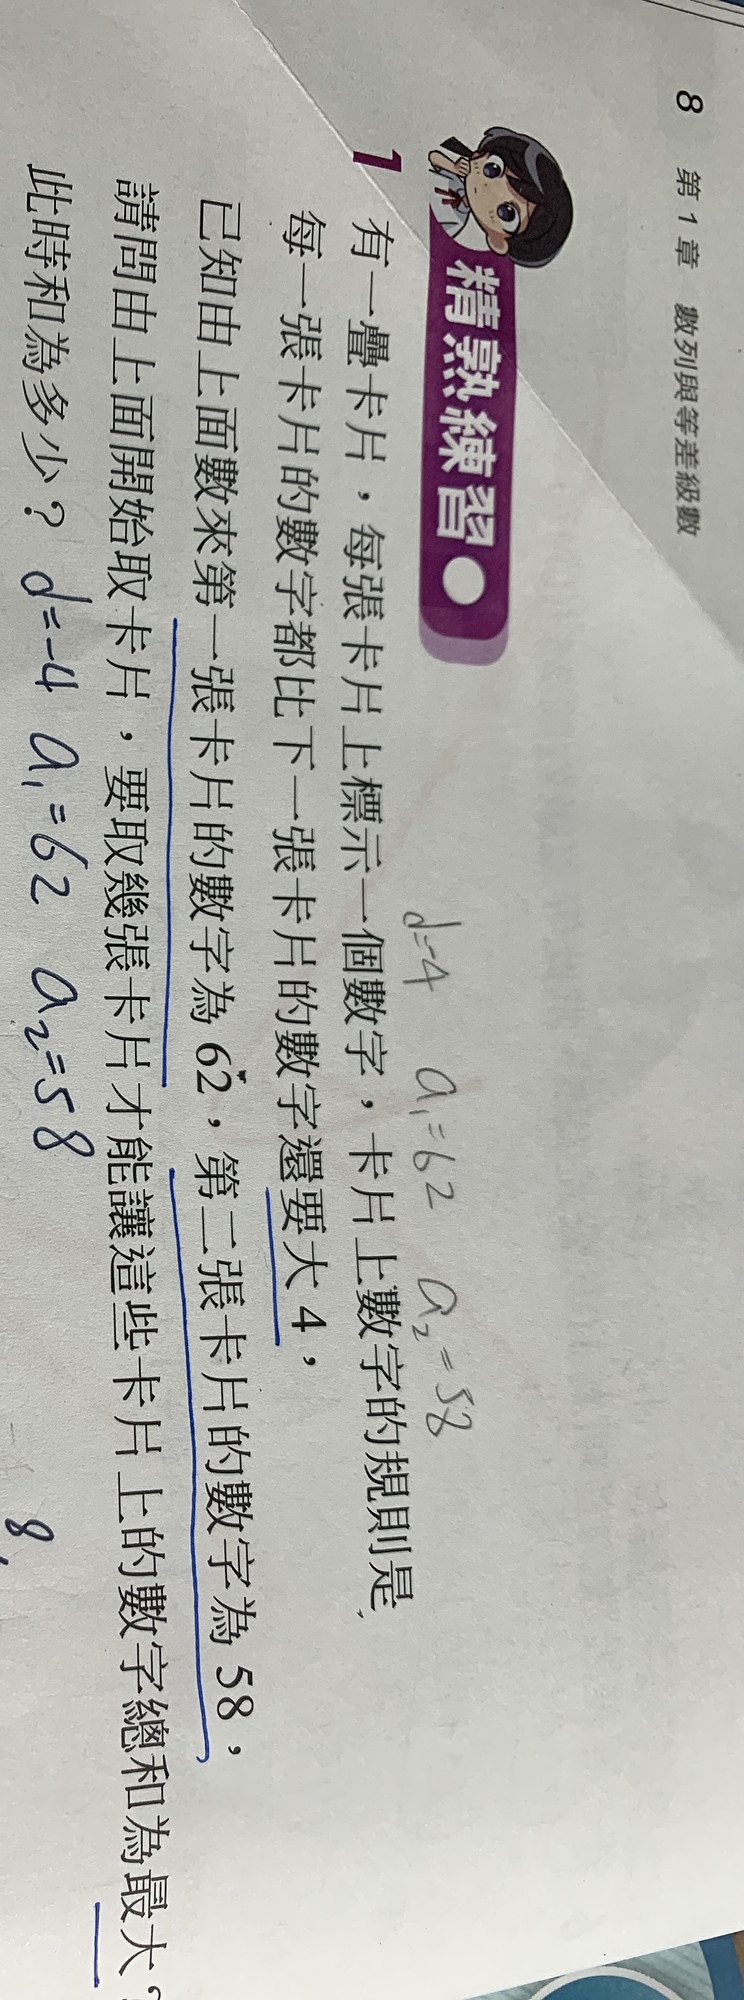 8 第 1 章 數列與等差級數
精熟練習
d=-4 a₁=62 a₂=58
1 有一疊卡片，每張卡片上標示一個數字，卡片上數字的規則是
每一張卡片的數字都比下一張卡片的數字還要大 4，
已知由上面數來第一張卡片的數字為 62，第二張卡片的數字為 58，
請問由上面開始取卡片，要取幾張卡片才能讓這些卡片上的數字總和為最大？
此時和為多少？ d=-4 a₁=62 a₂=58
8